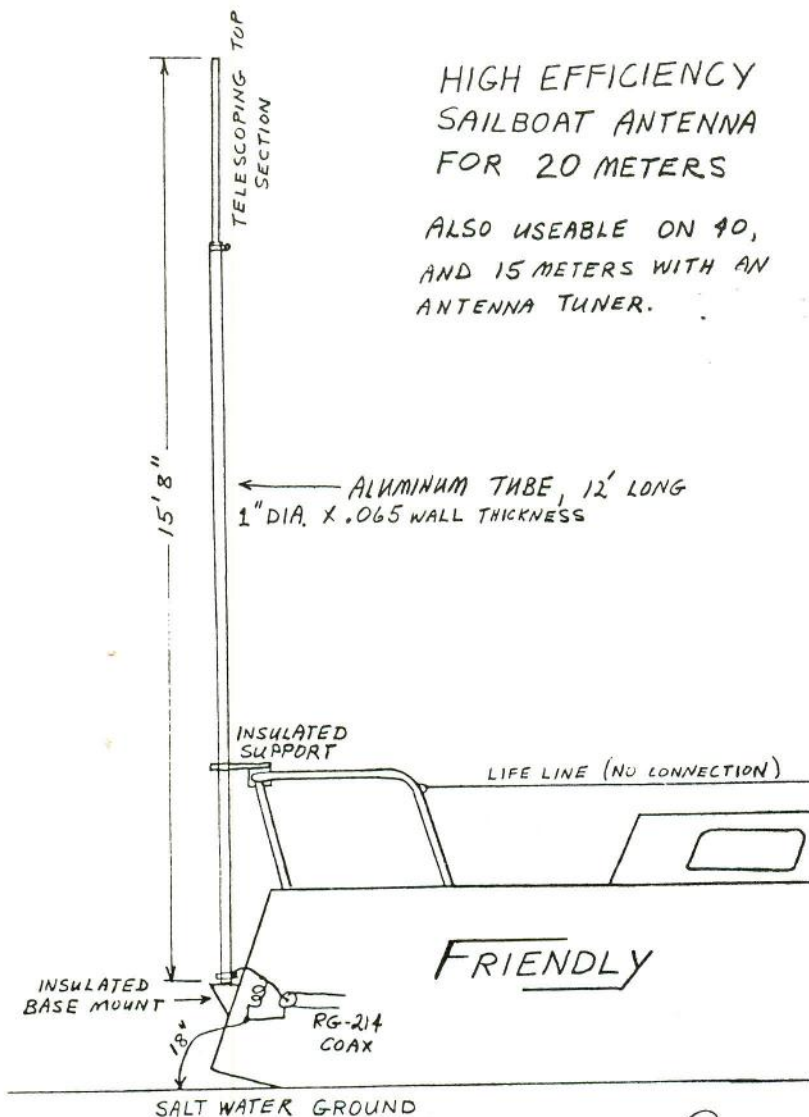 TELESCOPING TOP
SECTION
HIGH EFFICIENCY
SAILBOAT ANTENNA
FOR 20 METERS
ALSO USEABLE ON 40,
AND 15 METERS WITH AN
ANTENNA TUNER.
15' 8"
ALUMINUM TUBE, 12' LONG
1" DIA. X .065 WALL THICKNESS
INSULATED
SUPPORT
LIFE LINE (NO CONNECTION)
FRIENDLY
INSULATED
BASE MOUNT
18"
RG-214
COAX
SALT WATER GROUND